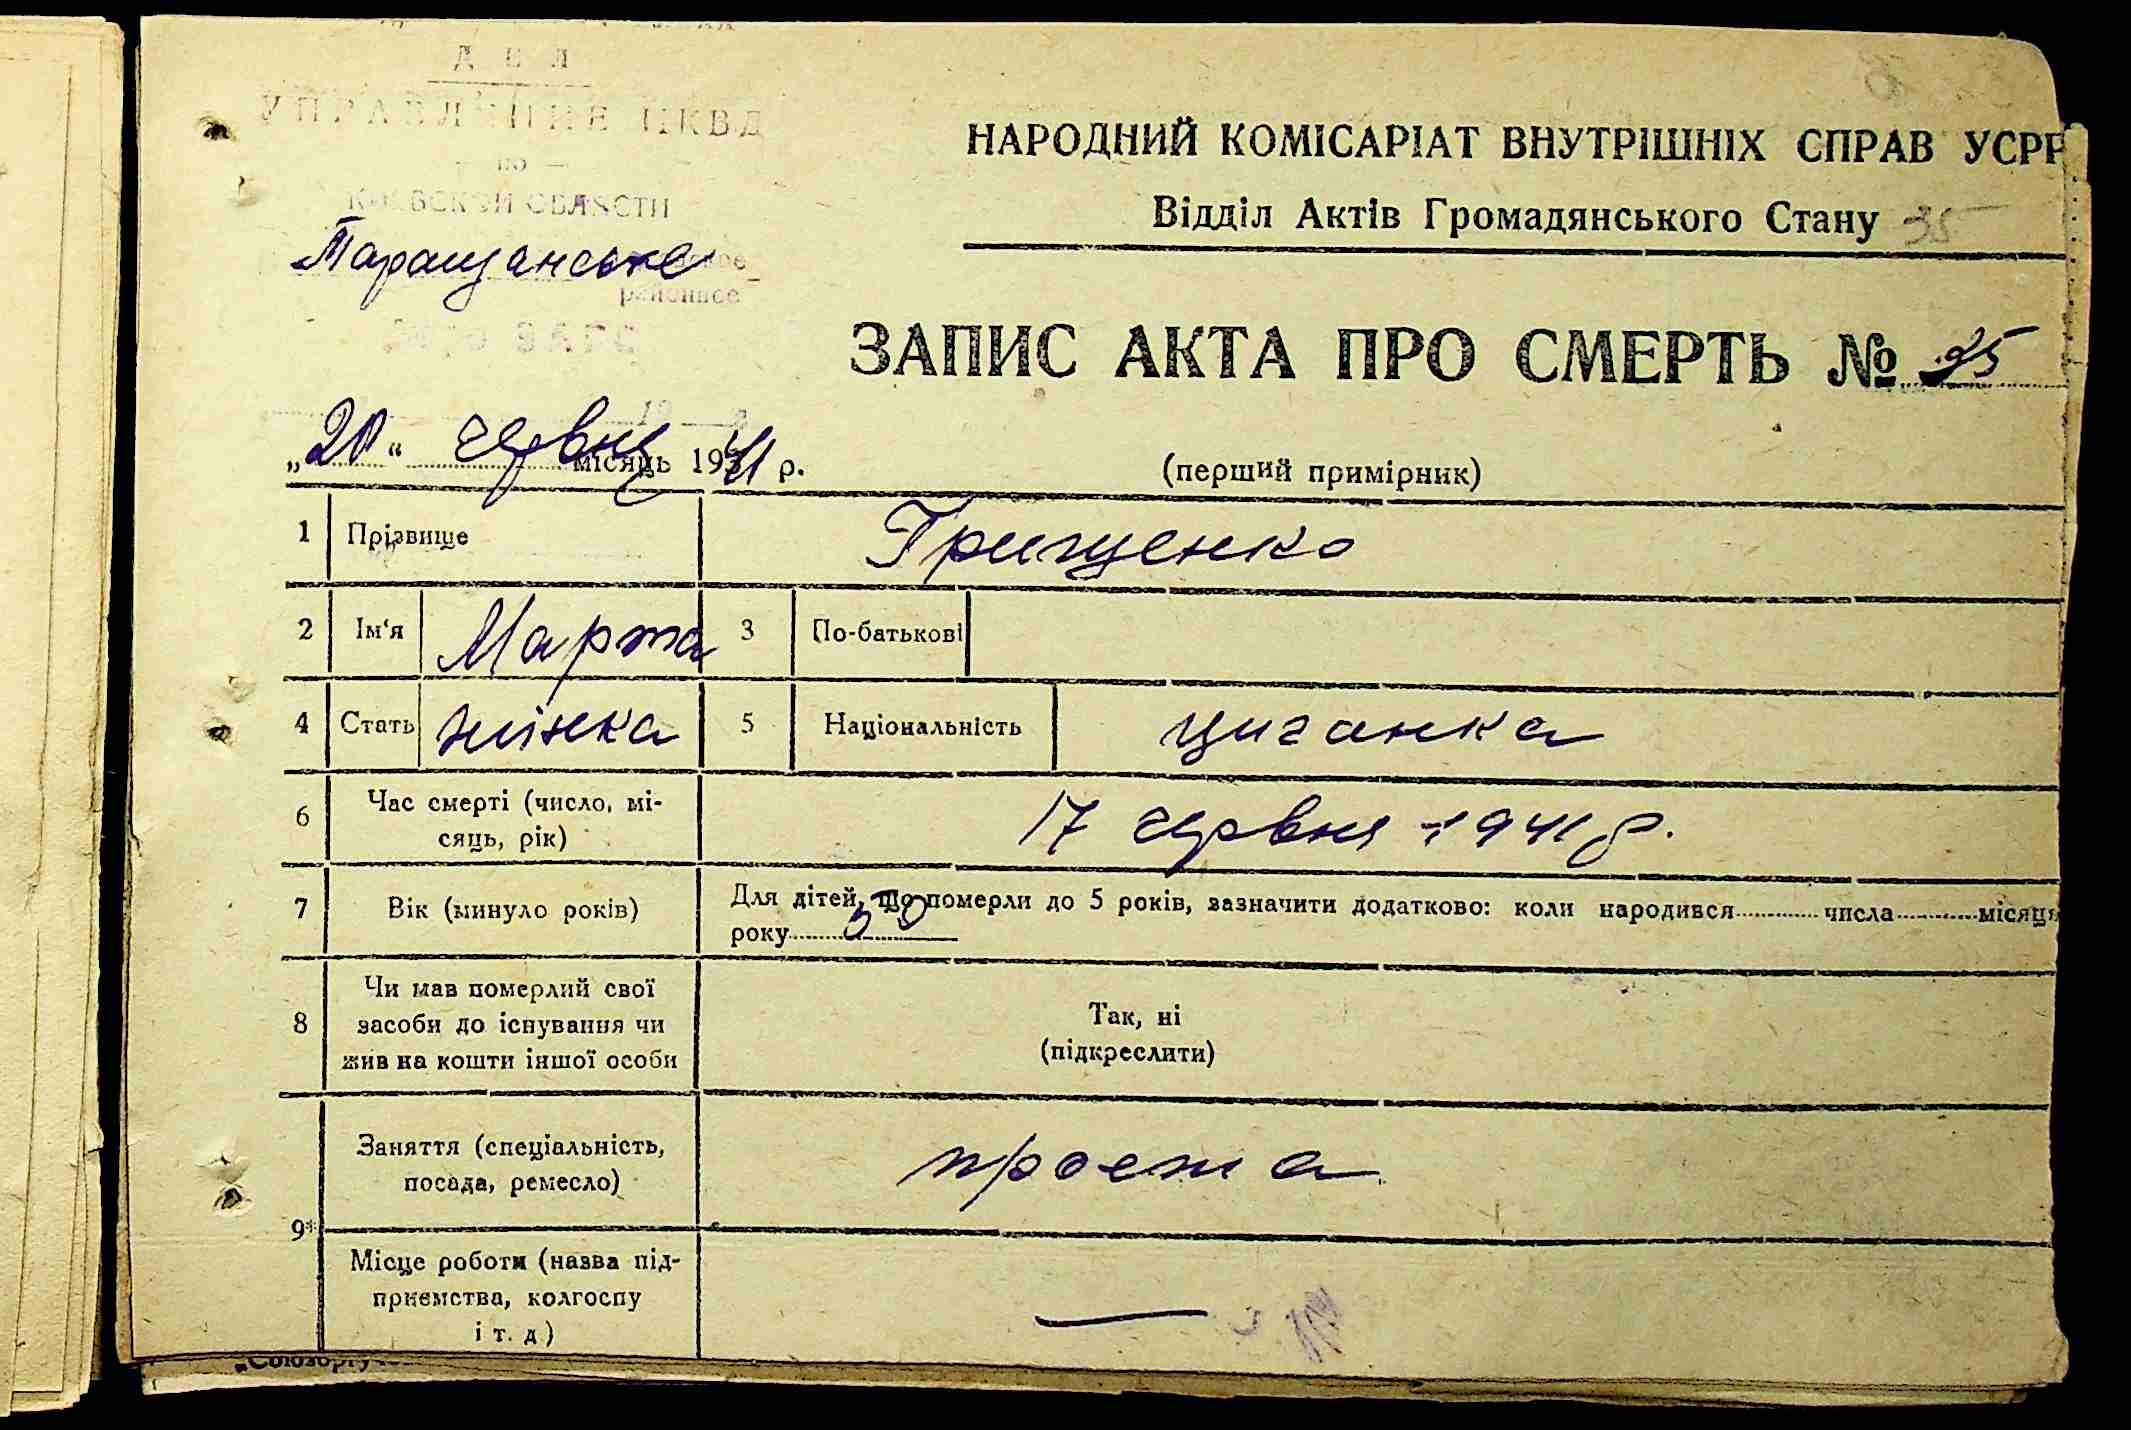 УПРАВЛЕНИЕ НКВД
по
КИЕВСКОЙ ОБЛАСТИ
Таращанське
районное
НАРОДНИЙ КОМІСАРІАТ ВНУТРІШНІХ СПРАВ УСРР
Відділ Актів Громадянського Стану 35
ЗАПИС АКТА ПРО СМЕРТЬ № 35
„20“ червня місяць 1941 р.
(перший примірник)
1 Прізвище Грищенко
2 Ім'я Марта 3 По-батькові
4 Стать жінка 5 Національність циганка
6 Час смерті (число, мі-
сяць, рік) 17 червня 1941 р.
7 Вік (минуло років) Для дітей, що померли до 5 років, зазначити додатково: коли народився числа місяць
року
8 Чи мав померлий свої
засоби до існування чи
жив на кошти іншої особи
Так, ні
(підкреслити)
9* Заняття (спеціальність,
посада, ремесло) проста
Місце роботи (назва під-
приємства, колгоспу
і т. д) —